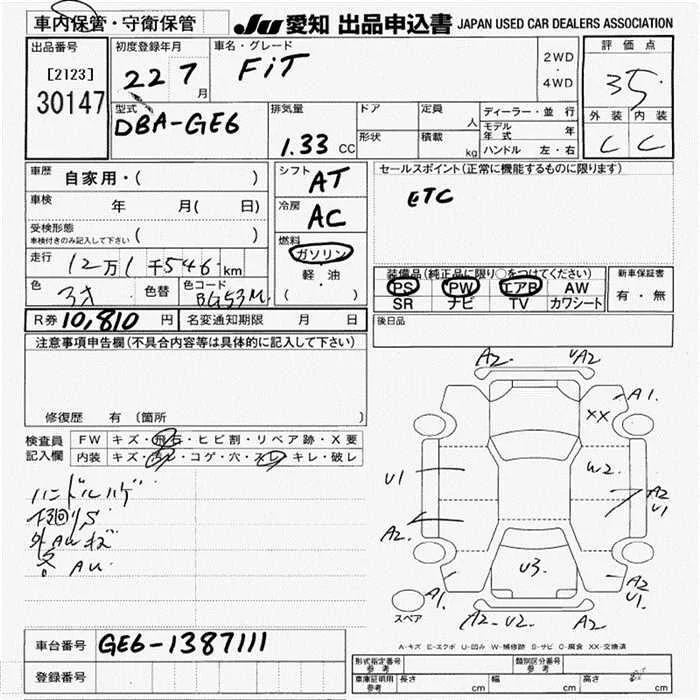 車内保管・守衛保管
JU 愛知 出品申込書 JAPAN USED CAR DEALERS ASSOCIATION
出品番号
[2123]
30147
初度登録年月
22 7 月
車名・グレード
FiT
2WD
・
4WD
評価点
35
外装 内装
C C
型式
DBA-GE6
排気量
1.33 CC
ドア
形状
定員 人
積載 kg
ディーラー・並行
モデル年式 年
ハンドル 左・右
車歴 自家用・( )
車検 年 月( 日)
受検形態
車検付きのみ記入して下さい ( )
走行 12万1千546km
色 色替 色コード BG53M
R券 10,810 円 名変通知期限 月 日
シフト
AT
冷房
AC
燃料
ガソリン
軽・油
( )
セールスポイント(正常に機能するものに限ります)
ETC
装備品(純正品に限り○をつけてください)
PS PW エアB AW
SR ナビ TV カワシート
新車保証書
有・無
後日品
注意事項申告欄(不具合内容等は具体的に記入して下さい)
修復歴 有 (箇所 )
検査員
記入欄
FW キズ・飛石・ヒビ割・リペア跡・X要
内装 キズ・汚レ・コゲ・穴・スレ・キレ・破レ
ハンドルハゲ
下回りS
A2 UA2
A1
XX
U1
W2
A2
U1
A2
U3
A1
A2
U1
A2-U2 A2
スペア
A-キズ E-エクボ U-凹み W-補修跡 S-サビ C-腐食 XX-交換済
車台番号 GE6-1387111
登録番号
形式指定番号 参考
類別区分番号 参考
車庫証明用 参考 長さ cm 幅 cm 高さ cm